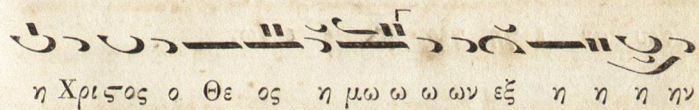 η Χριϛος ο Θε ος η μω ω ω ων εξ η η η ην